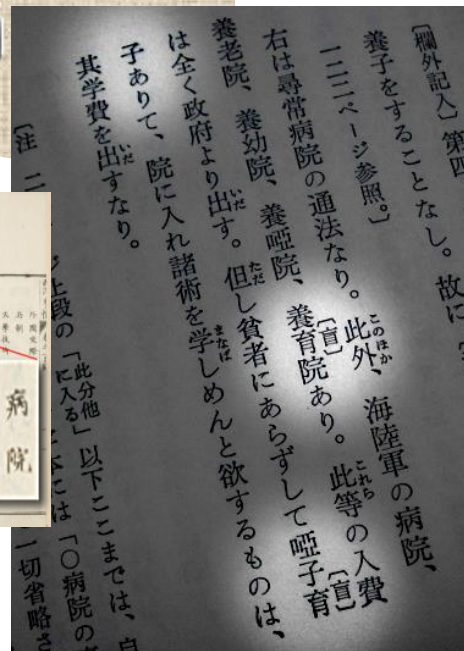 〔欄外記入〕第四
養子をすることなし。故に
一二二ページ参照。〕
右は尋常病院の通法なり。此外、海陸軍の病院、
養老院、養幼院、養啞院、養育〔盲〕院あり。此等の入費
は全く政府より出す。但し貧者にあらずして啞子育〔盲〕
子ありて、院に入れ諸術を学しめんと欲するものは、
其学費を出すなり。
〔注 二
上段の「此分他
に入る」以下ここまでは、自
には「〇病院の
一切省略さ
病院